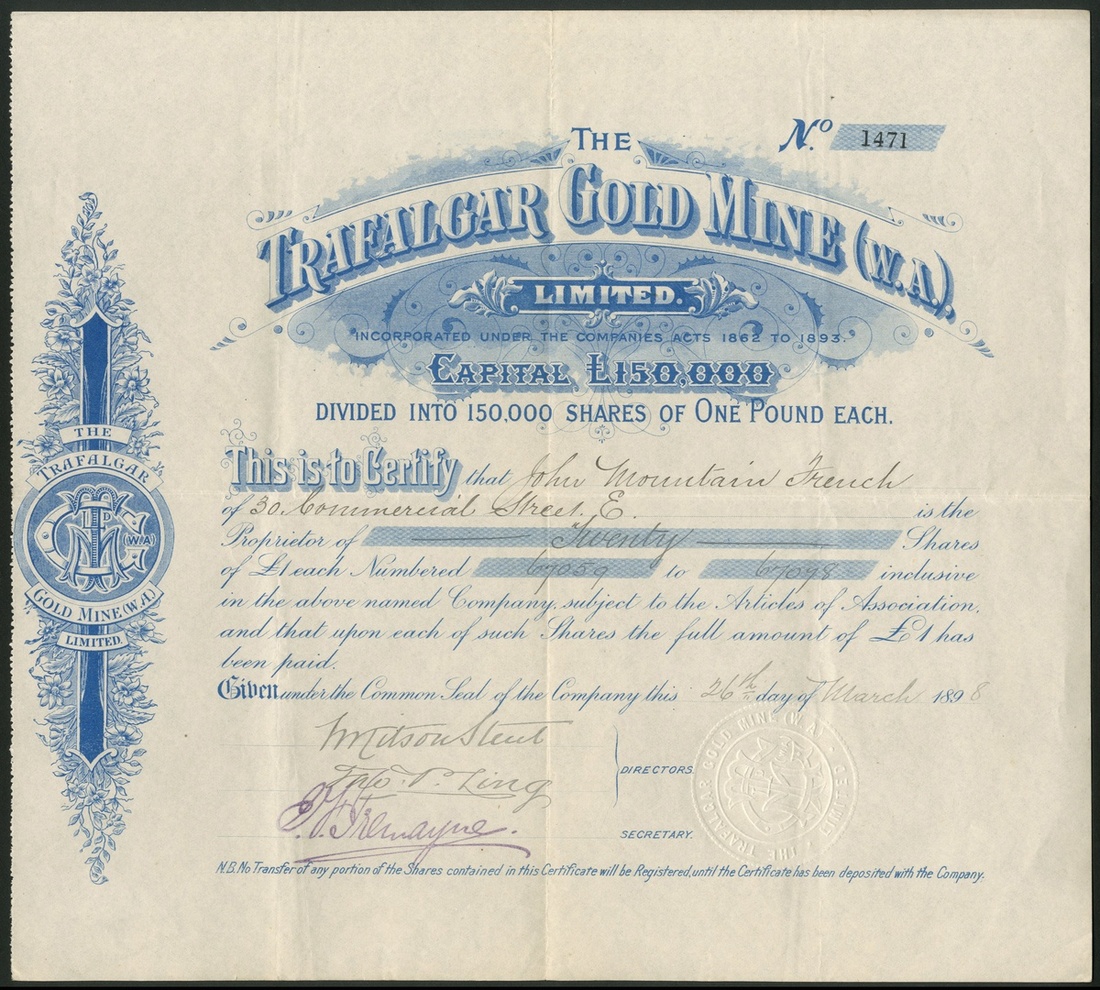 No. 1471
THE
TRAFALGAR GOLD MINE (W.A),
LIMITED.
INCORPORATED UNDER THE COMPANIES ACTS 1862 TO 1893.
CAPITAL, £150,000
DIVIDED INTO 150,000 SHARES OF ONE POUND EACH.
This is to Certify that John Mountain French
of 30. Commercial Street. E. is the
Proprietor of Twenty Shares
of £1 each Numbered to inclusive
in the above named Company, subject to the Articles of Association,
and that upon each of such Shares the full amount of £1 has
been paid.
Given under the Common Seal of the Company this 26th day of March 1898
DIRECTORS.
Ling
E. Tremayne.
SECRETARY.
N.B. No Transfer of any portion of the Shares contained in this Certificate will be Registered, until the Certificate has been deposited with the Company.
THE
TRAFALGAR
LD
(W.A)
GOLD MINE (W.A)
LIMITED.
THE TRAFALGAR GOLD MINE (W.A) LIMITED